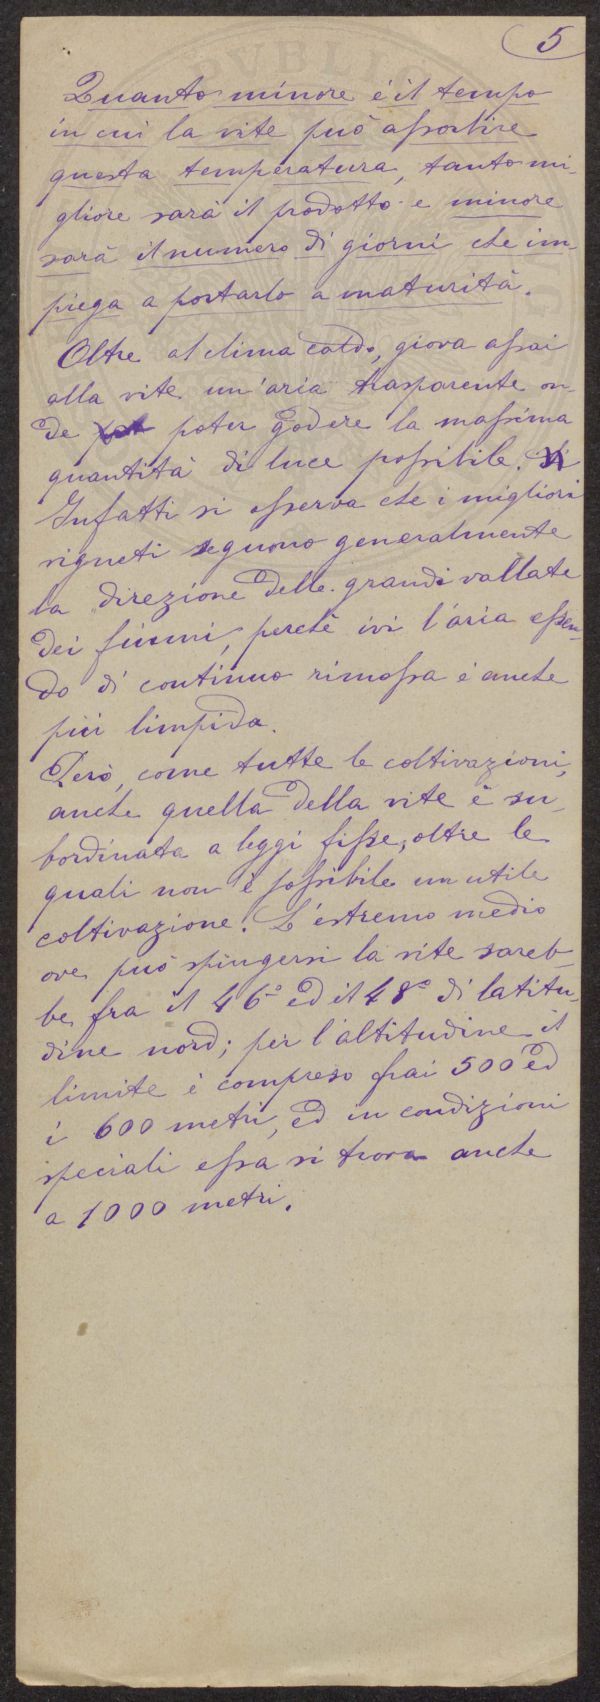 5
Quanto minore è il tempo
in cui la vite può assorbire
questa temperatura, tanto mi-
gliore sarà il prodotto e minore
sarà il numero di giorni che im-
piega a portarlo a maturità.
Oltre al clima caldo, giova assai
alla vite un'aria trasparente on-
de poter godere la massima
quantità di luce possibile.
Infatti si osserva che i migliori
vigneti seguono generalmente
la direzione delle grandi vallate
dei fiumi, perchè ivi l'aria essen-
do di continuo rimossa è anche
più limpida.
Però, come tutte le coltivazioni,
anche quella della vite è su-
bordinata a leggi fisse, oltre le
quali non è possibile un utile
coltivazione. L'estremo medio
ove può spingersi la vite sareb-
be fra il 46° ed il 48° di latitu-
dine nord; per l'altitudine il
limite è compreso frai 500 ed
i 600 metri, ed in condizioni
speciali essa si trova anche
a 1000 metri.